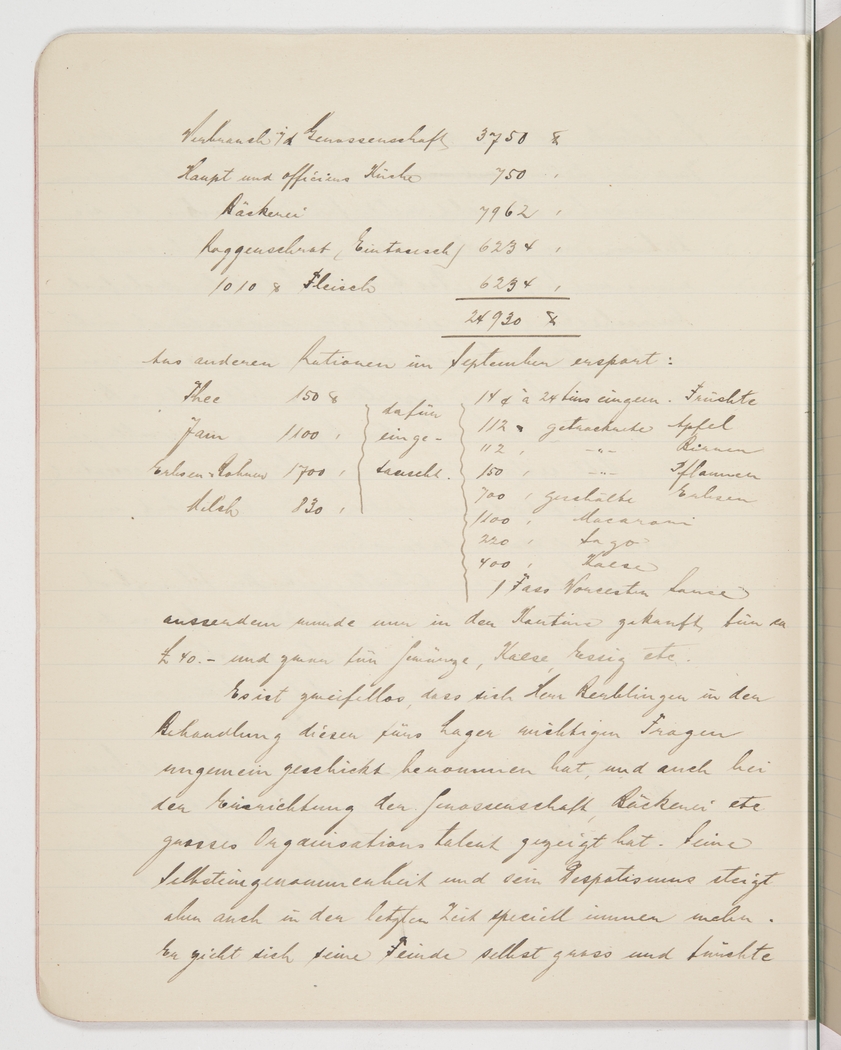 Verbrauch i/d Genossenschaft 3750 ℔
Haupt und officiers Küche 750 "
Bäckerei 7962 "
Roggenschrot (Eintausch) 6234 "
1010 ℔ Fleisch 6234 "
24930 ℔
Aus anderen Rationen im September erspart:
Thee 150 ℔
Jam 1100 "
Erbsen u. Bohnen 1700 "
Milch 830 "
dafür
einge-
tauscht.
14 ℔ à 24 tins eingem. Früchte
112 " getrocknete Apfel
112 " -"- Birnen
150 " -"- Pflaumen
700 " geschälte Erbsen
1100 " Macaroni
220 " Sago
400 " Kaese
1 Fass Worcester Sauce
ausserdem wurde nur in der Kantine gekauft für ca
£ 40.- und zwar für Gewürze, Kaese, Essig etc.
Es ist zweifellos, dass sich Herr Berblinger in der
Behandlung dieser fürs Lager wichtigen Fragen
ungemein geschickt benommen hat, und auch bei
der Einrichtung der Genossenschaft, Bäckerei etc
grosses Organisationstalent gezeigt hat. Seine
Selbsteingenommenheit und sein Despotismus steigt
aber auch in der letzten Zeit speciell immer mehr.
Er zieht sich seine Feinde selbst gross und fürchte